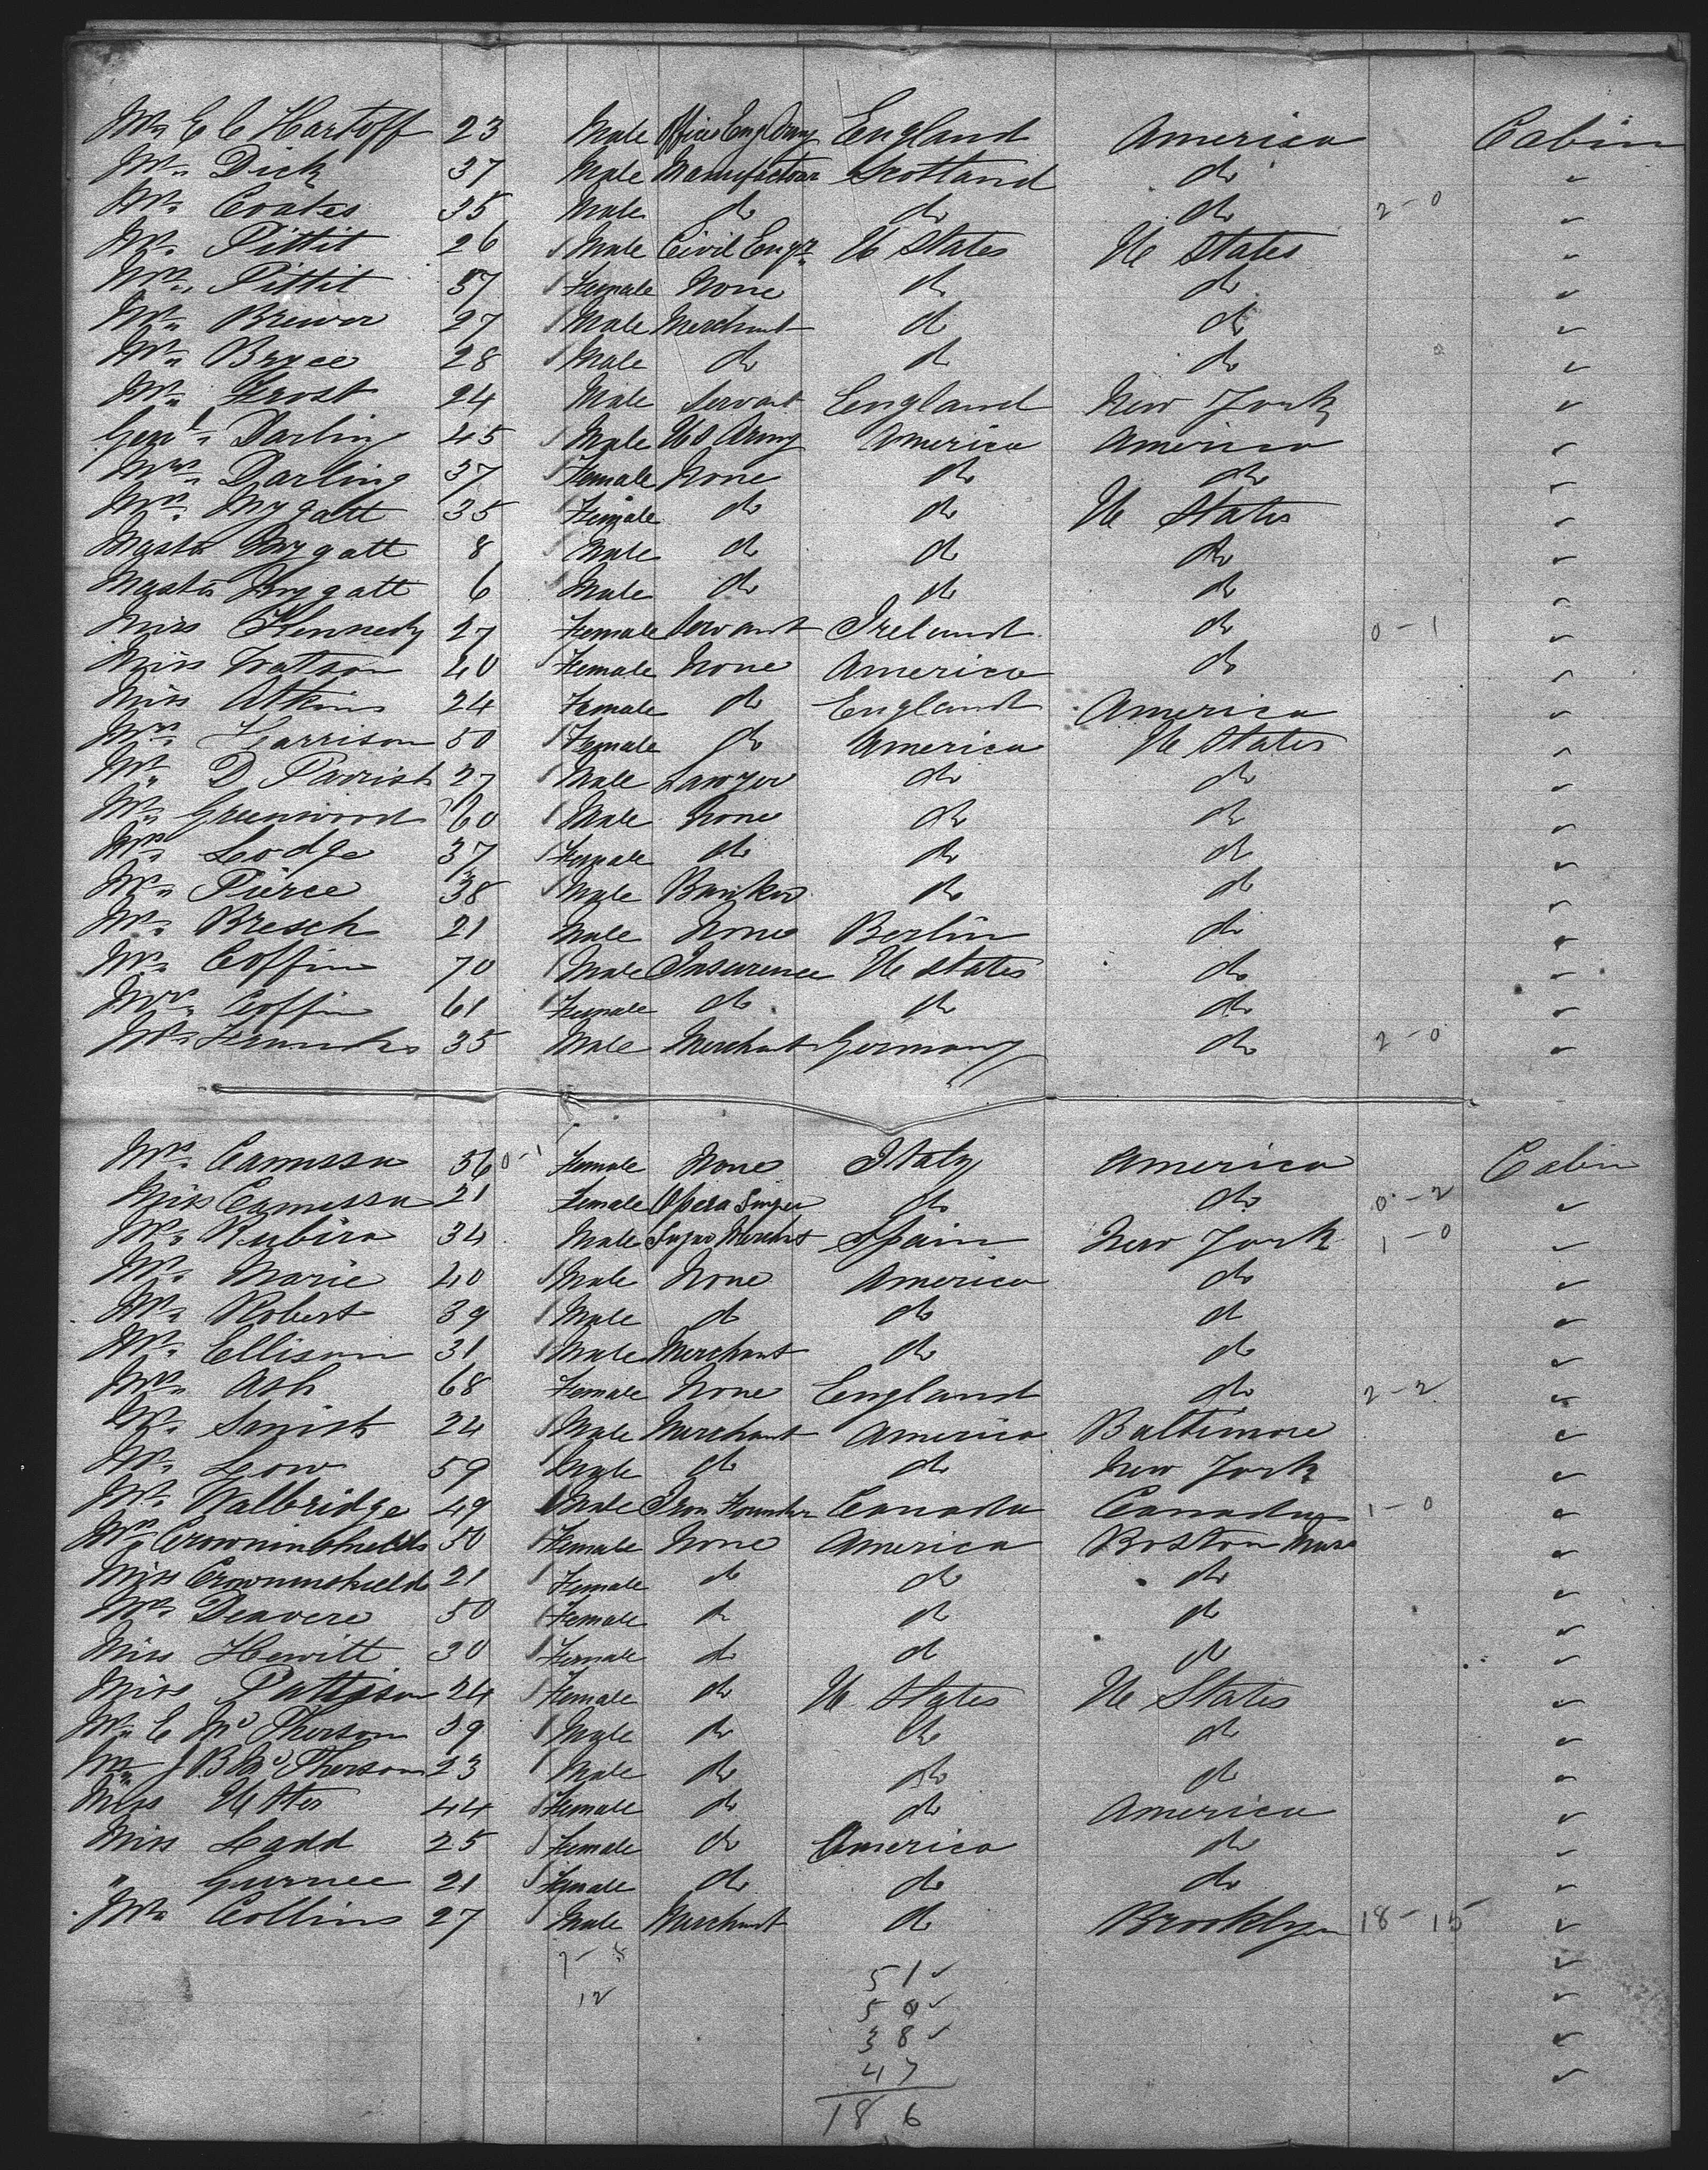 Mr E C Hartoff 23 Male Officer Eng Army England America Cabin
Mr Dick 37 Male Manufacturer Scotland do "
Mr Coates 35 Male do do do 2-0 "
Mr Pittit 26 Male Civil Engr U States U States "
Mrs Pittit 57 Female None do do "
Mr Brewer 27 Male Merchant do do "
Mr Bryce 28 Male do do do "
Mr Frost 24 Male Servant England New York "
Genl Darling 45 Male US Army America America "
Mrs Darling 37 Female None do do "
Mrs Mygatt 35 Female do do U States "
Master Mygatt 8 Male do do do "
Master Mygatt 6 Male do do do "
Miss Kennedy 27 Female Servant Ireland do 0-1 "
Miss Watson 40 Female None America do "
Miss Atkins 24 Female do England America "
Mrs Harrison 50 Female do America U States "
Mr D Parrish 27 Male Lawyer do do "
Mr Greenwood 60 Male None do do "
Mrs Lodge 37 Female do do do "
Mr Pierce 38 Male Banker do do "
Mr Bresch 21 Male None Berlin do "
Mr Coffin 70 Male Insurence U States do "
Mrs Coffin 61 Female do do do "
Mr 35 Male Merchant Germany do 2-0 "
Mrs Camissa 56 0-1 Female None Italy America Cabin
Miss Camissa 21 Female Opera Singer do do 0-2 "
Mr Rubira 34 Male Sugar Mercht Spain New York 1-0 "
Mr Marie 40 Male None America do "
Mr Robert 39 Male do do do "
Mr Ellison 31 Male Merchant do do "
Mrs Ash 68 Female None England do 2-2 "
Mr Smith 24 Male Merchant America Baltimore "
Mr Low 59 Male do do New York "
Mr Walbridge 49 Male Iron Founder Canada Canada 1-0 "
Mrs Crowninshields 50 Female None America Boston Mass "
Miss Crowninshields 21 Female do do do "
Mrs Deavere 50 Female do do do "
Miss Hewitt 30 Female do do do "
Miss Pattison 24 Female do U States U States "
Mr C McPherson 39 Male do do do "
Mr J B McPherson 23 Male do do do "
Miss 44 Female do do America "
Miss Ladd 25 Female do America do "
" Gurnee 21 Female do do do "
Mr Collins 27 Male Merchant do Brooklyn 18-15 "
51 "
12 50 "
38 "
47 "
186